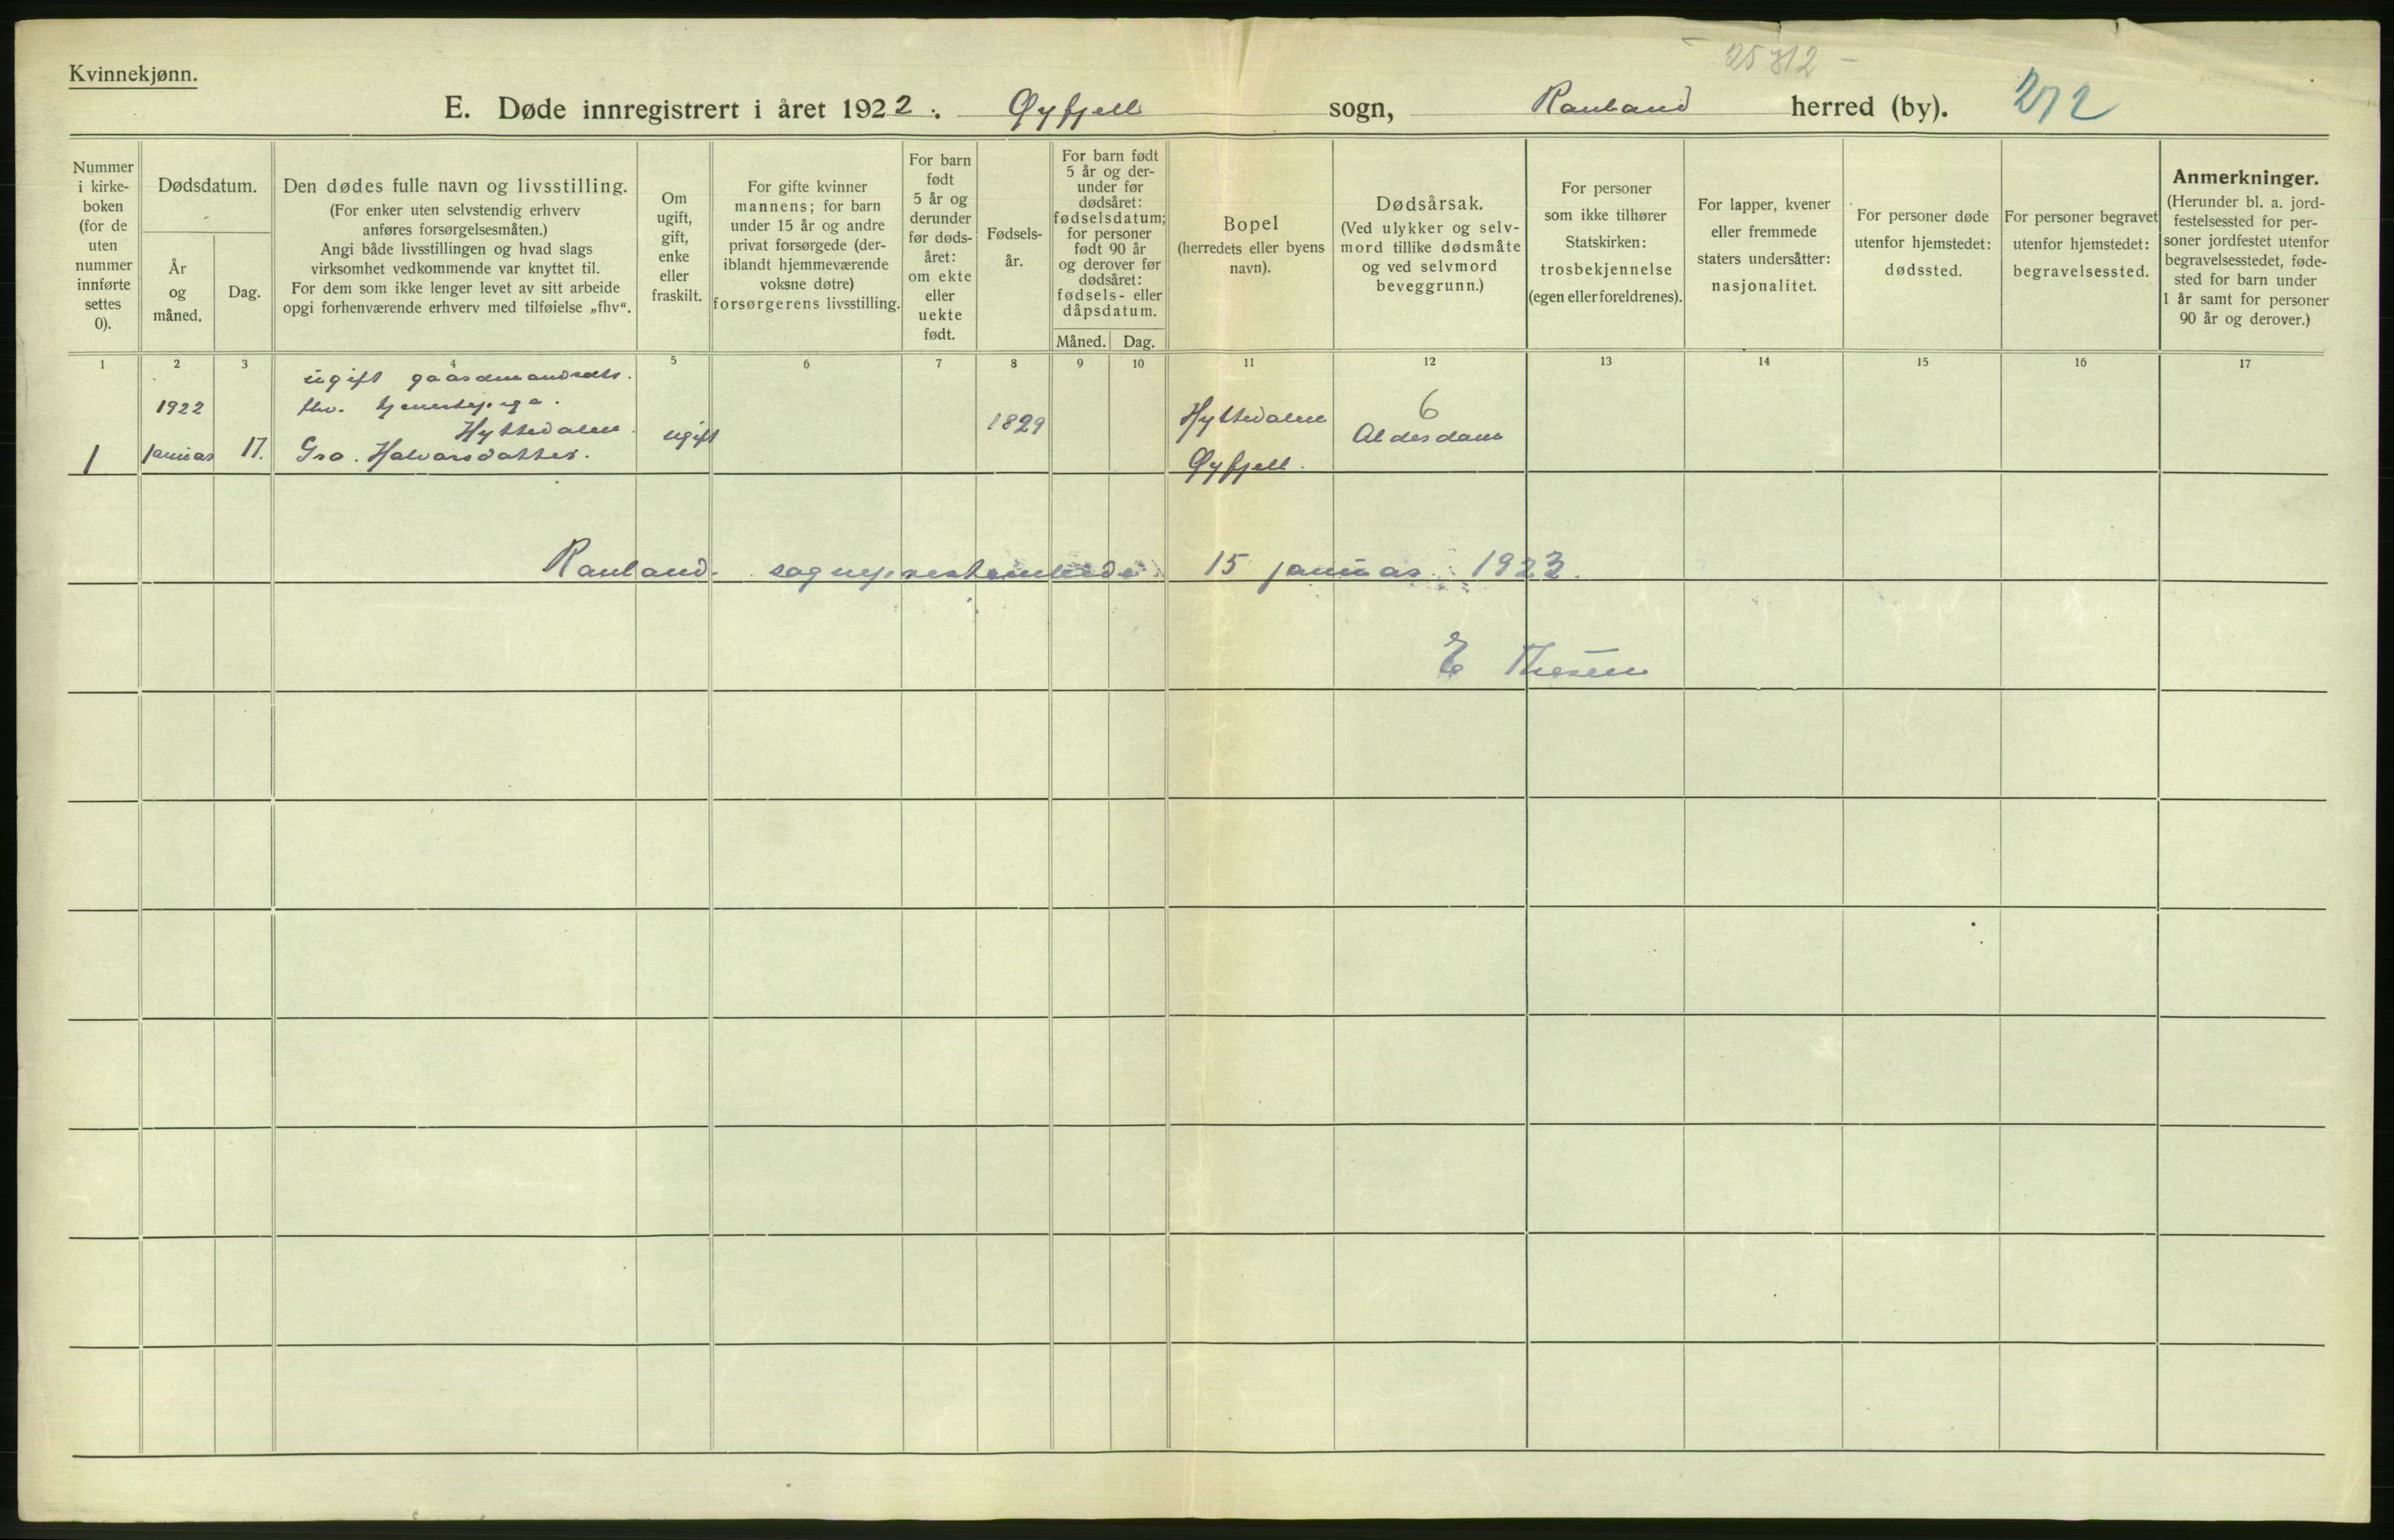 25312
Kvinnekjønn.
E. Døde innregistrert i året 1922. Øyfjell sogn, Rauland herred (by). 272
Nummer
i kirke-
boken
(for de
uten
nummer
innførte
settes
0).
Dødsdatum.
År
og
måned.
Dag.
Den dødes fulle navn og livsstilling.
(For enker uten selvstendig erhverv
anføres forsørgelsesmåten.)
Angi både livsstillingen og hvad slags
virksomhet vedkommende var knyttet til.
For dem som ikke lenger levet av sitt arbeide
opgi forhenværende erhverv med tilføielse „fhv“.
Om
ugift,
gift,
enke
eller
fraskilt.
For gifte kvinner
mannens; for barn
under 15 år og andre
privat forsørgede (der-
iblandt hjemmeværende
voksne døtre)
forsørgerens livsstilling.
For barn
født
5 år og
derunder
før døds-
året:
om ekte
eller
uekte
født.
Fødsels-
år.
For barn født
5 år og der-
under før
dødsåret:
fødselsdatum;
for personer
født 90 år
og derover før
dødsåret:
fødsels- eller
dåpsdatum.
Måned. Dag.
Bopel
(herredets eller byens
navn).
Dødsårsak.
(Ved ulykker og selv-
mord tillike dødsmåte
og ved selvmord
beveggrunn.)
For personer
som ikke tilhører
Statskirken:
trosbekjennelse
(egen eller foreldrenes).
For lapper, kvener
eller fremmede
staters undersåtter:
nasjonalitet.
For personer døde
utenfor hjemstedet:
dødssted.
For personer begravet
utenfor hjemstedet:
begravelsessted.
Anmerkninger.
(Herunder bl. a. jord-
festelsessted for per-
soner jordfestet utenfor
begravelsesstedet, føde-
sted for barn under
1 år samt for personer
90 år og derover.)
1 2 3 4 5 6 7 8 9 10 11 12 13 14 15 16 17
ugift gaardmandsdtr.
1922 fhv. tjenestepige. 1829 Hyttedalen 6
Hyttedalen. ugift Alderdom
1 januar 17. Gro Halvorsdatter. Øyfjell.
Rauland sogneprestembede 15 januar 1923.
E Thesen